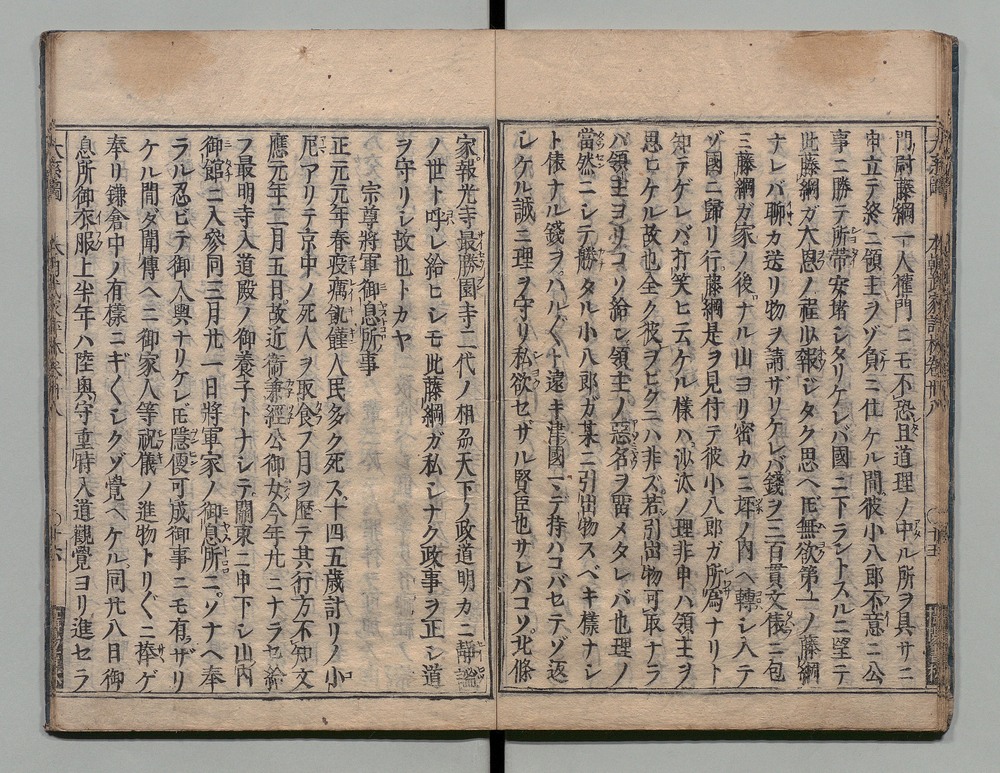 門尉藤綱一人權門ニモ不恐且道理ノ中ル所ヲ具サニ
申立テ終ニ領主ヲゾ負ニ仕ケル間彼小八郎不意ニ公
事ニ勝テ所帶安堵シタリケレバ國ニ下ラントスルニ望ニテ
此藤綱ガ大恩ノ程以報ジタク思ヘ𪜈無欲第一ノ藤綱
ナレバ聊カ送リ物ヲ請ザリケレバ錢ヲ三百貫文俵ニ包
ミ藤綱ガ家ノ後ナル山ヨリ密カニ坪ノ內ヘ轉シ入テ
ゾ國ニ歸リ行藤綱是ヲ見付テ彼小八郎ガ所爲ナリト
知テゲレバ打笑ヒ云ケル樣ハ沙汰ノ理非申ハ領主ヲ
思ヒケル故也全ク彼ヲヒクニハ非ズ若引出物可取ナラ
バ領主ヨリコソ給ヒ領主ノ惡名ヲ畱メタレバ也理ノ
當然ニシテ勝タル小八郎ガ某ニ引出物スベキ樣ナシ
ト俵ナル錢ヲハル〲ト遠キ津國マデ持ハコバセテゾ返
シケル誠ニ理ヲ守リ私欲セザル賢臣也サレバコソ北條
家報光寺最勝園寺二代ノ相刕天下ノ政道明カニ靜謐
ノ世ト呼レ給ヒシモ此藤綱ガ私シナク政事ヲ正シ道
ヲ守リシ故也トカヤ
宗尊將軍御息所事
正元元年春疫癘飢饉人民多ク死ス十四五歲計リノ小
尼アリテ京中ノ死人ヲ取食フ月ヲ歷テ其行方不知文
應元年二月五日故近衞兼經公御女今年廿ニナラセ給
フ最明寺入道殿ノ御養子トナシテ關東ニ申下シ山內
御館ニ入參同三月廿一日將軍家ノ御息所ニソナヘ奉
ラル忍ビテ御入輿ナリケレ𪜈隱便可成御事ニモ有ザリ
ケル間ダ聞傳ヘニ御家人等祝儀ノ進物トリ〲ニ捧ゲ
奉リ鎌倉中ノ有樣ニギ〱シクゾ覺ヘケル同廿八日御
息所御衣服上半年ハ陸奧守重時入道觀覺ヨリ進セラ